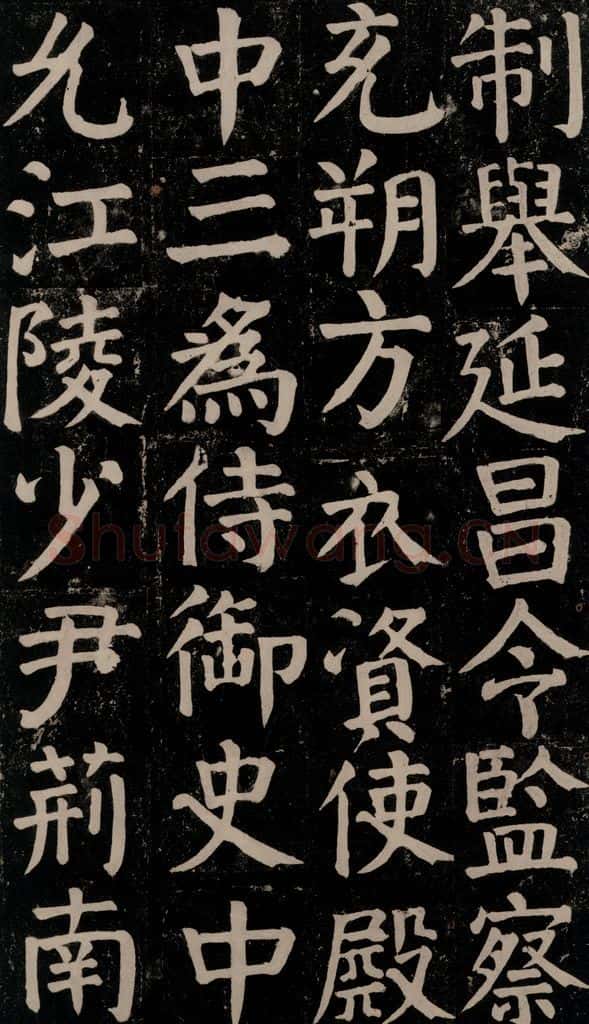 制舉延昌令監察
充朔方衣資使殿
中三為侍御史中
允江陵少尹荊南
Shufawang.CN